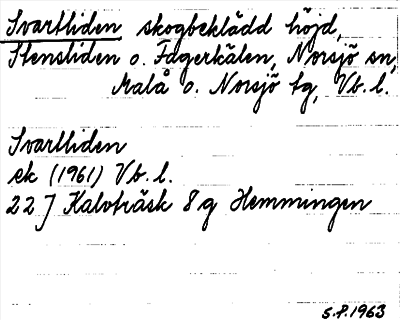 Svartliden skogbeklädd höjd,
Stensliden o. Fagerkälen, Norsjö sn,
Malå o. Norsjö tg, Vb. l.
Svartliden
ek (1961) Vb. l.
22 J Kalvträsk 8 g Hemmingen
S.P. 1963